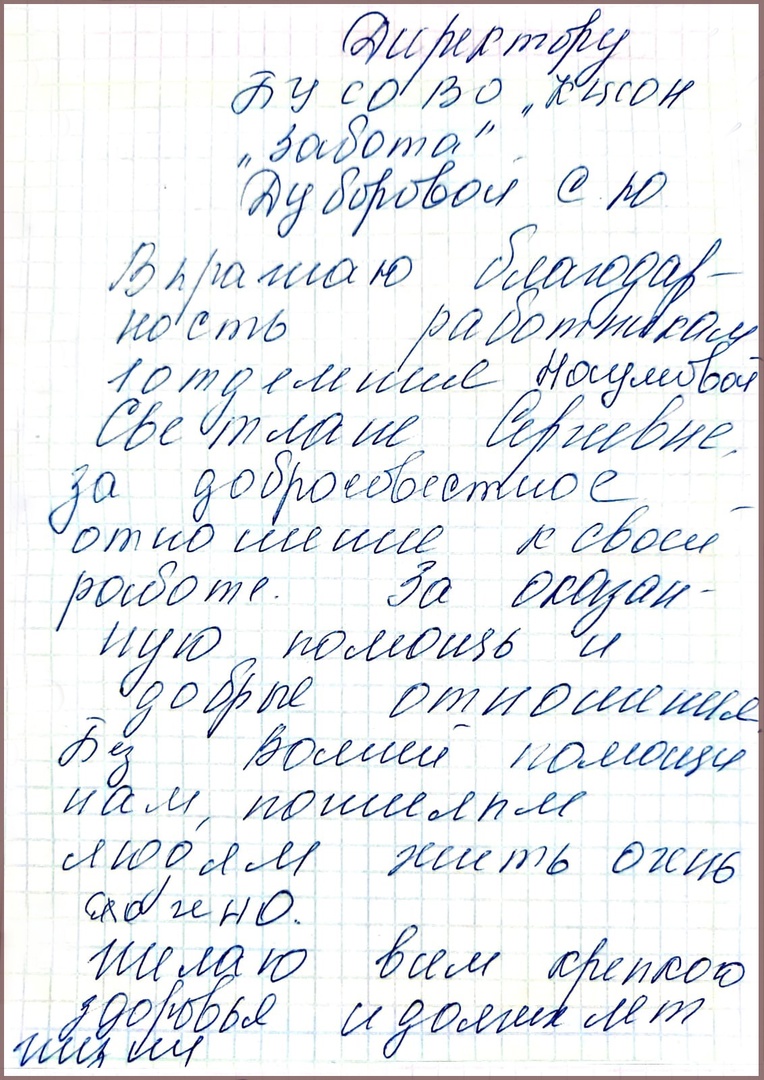 Директору
БУ СО ВО „КЦСОН
„Забота"
Дуборовой С.Ю
Выражаю благодар-
ность работникам
1 отделения Наумовой
Светлане Сергиевне,
за добросовестное
отношение к своей
работе. За оказан-
ную помощь и
добрые отношения.
Без Вашей помощи
нам, пожилым
людям жить очень
сложно.
Желаю всем крепкого
здоровья и долгих лет
жизни